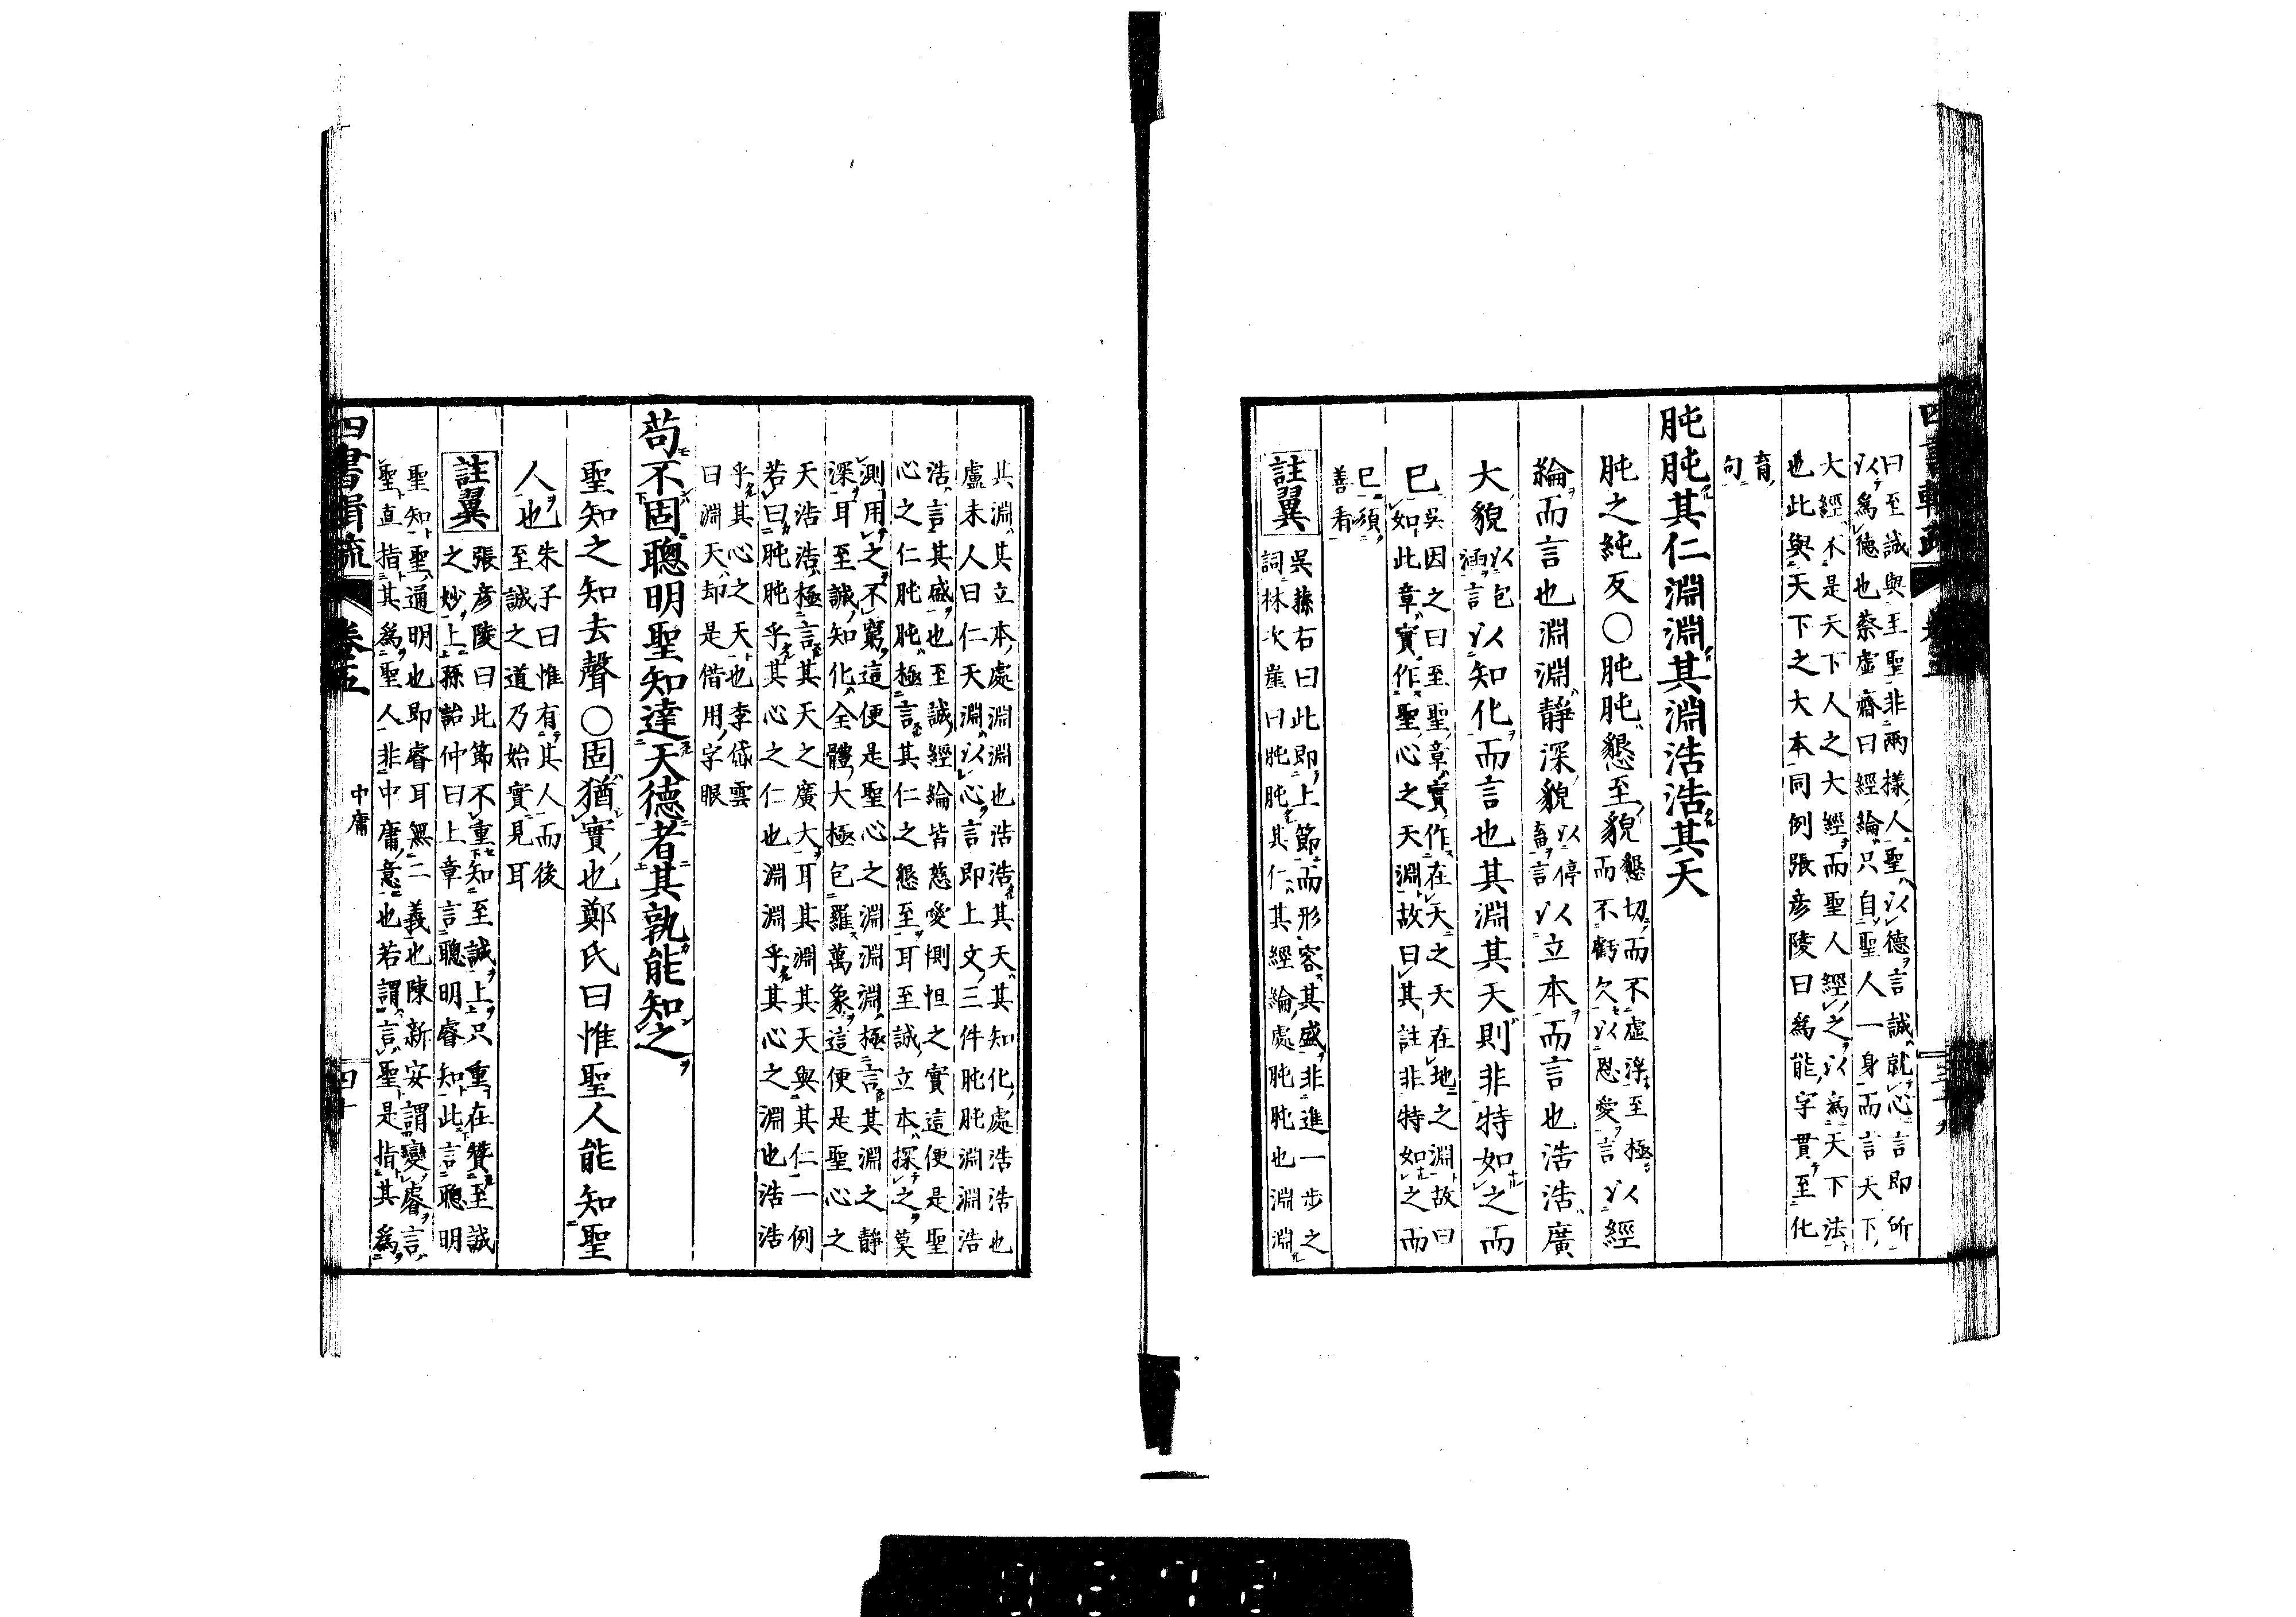 四書輯疏 卷五 三十九
曰至誠與至聖非兩樣人聖以德言誠就心言即所
以為德也蔡虛齋曰經綸只自聖人一身而言天下
大經不是天下人之大經而聖人經之以為天下法
也此與天下之大本同例張彥陵曰為能字貫至化
育
句
肫肫其仁淵淵其淵浩浩其天
肫之純反○肫肫懇至貌懇切而不虛浮至極
而不虧欠以恩愛言以經
綸而言也淵淵靜深貌以停
畜言以立本而言也浩浩廣
大貌以包
涵言以知化而言也其淵其天則非特如之而
已吳因之曰至聖章實作在天之天在地之淵故曰
如此章實作聖心之天淵故曰其註非特如之而
已須
善看
註翼 吳蓀右曰此即上節而形容其盛非進一步之
詞林次崖曰肫肫其仁其經綸處肫肫也淵淵
其淵其立本處淵淵也浩浩其天其知化處浩浩也
盧未人曰仁天淵以心言即上文三件肫肫淵淵浩
浩言其盛也至誠經綸皆慈愛惻怛之實這便是聖
心之仁肫肫極言其仁之懇至耳至誠立本探之莫
測用之不窮這便是聖心之淵淵淵極言其淵之靜
深耳至誠知化全體大極包羅萬象這便是聖心之
天浩浩極言其天之廣大耳其淵其天與其仁一例
若曰肫肫乎其心之仁也淵淵乎其心之淵也浩浩
乎其心之天也李岱雲
曰淵天却是借用字眼
苟不固聰明聖知達天德者其孰能知之
聖知之知去聲○固猶實也鄭氏曰惟聖人能知聖
人也朱子曰惟有其人而後
至誠之道乃始實見耳
註翼 張彥陵曰此節不重知至誠上只重在贊至誠
之妙上孫詒仲曰上章言聰明睿知此言聰明
聖知聖通明也即睿耳無二義也陳新安謂變睿言
聖直指其為聖人非中庸意也若謂言聖是指其為
四書輯疏 卷五 中庸 四十